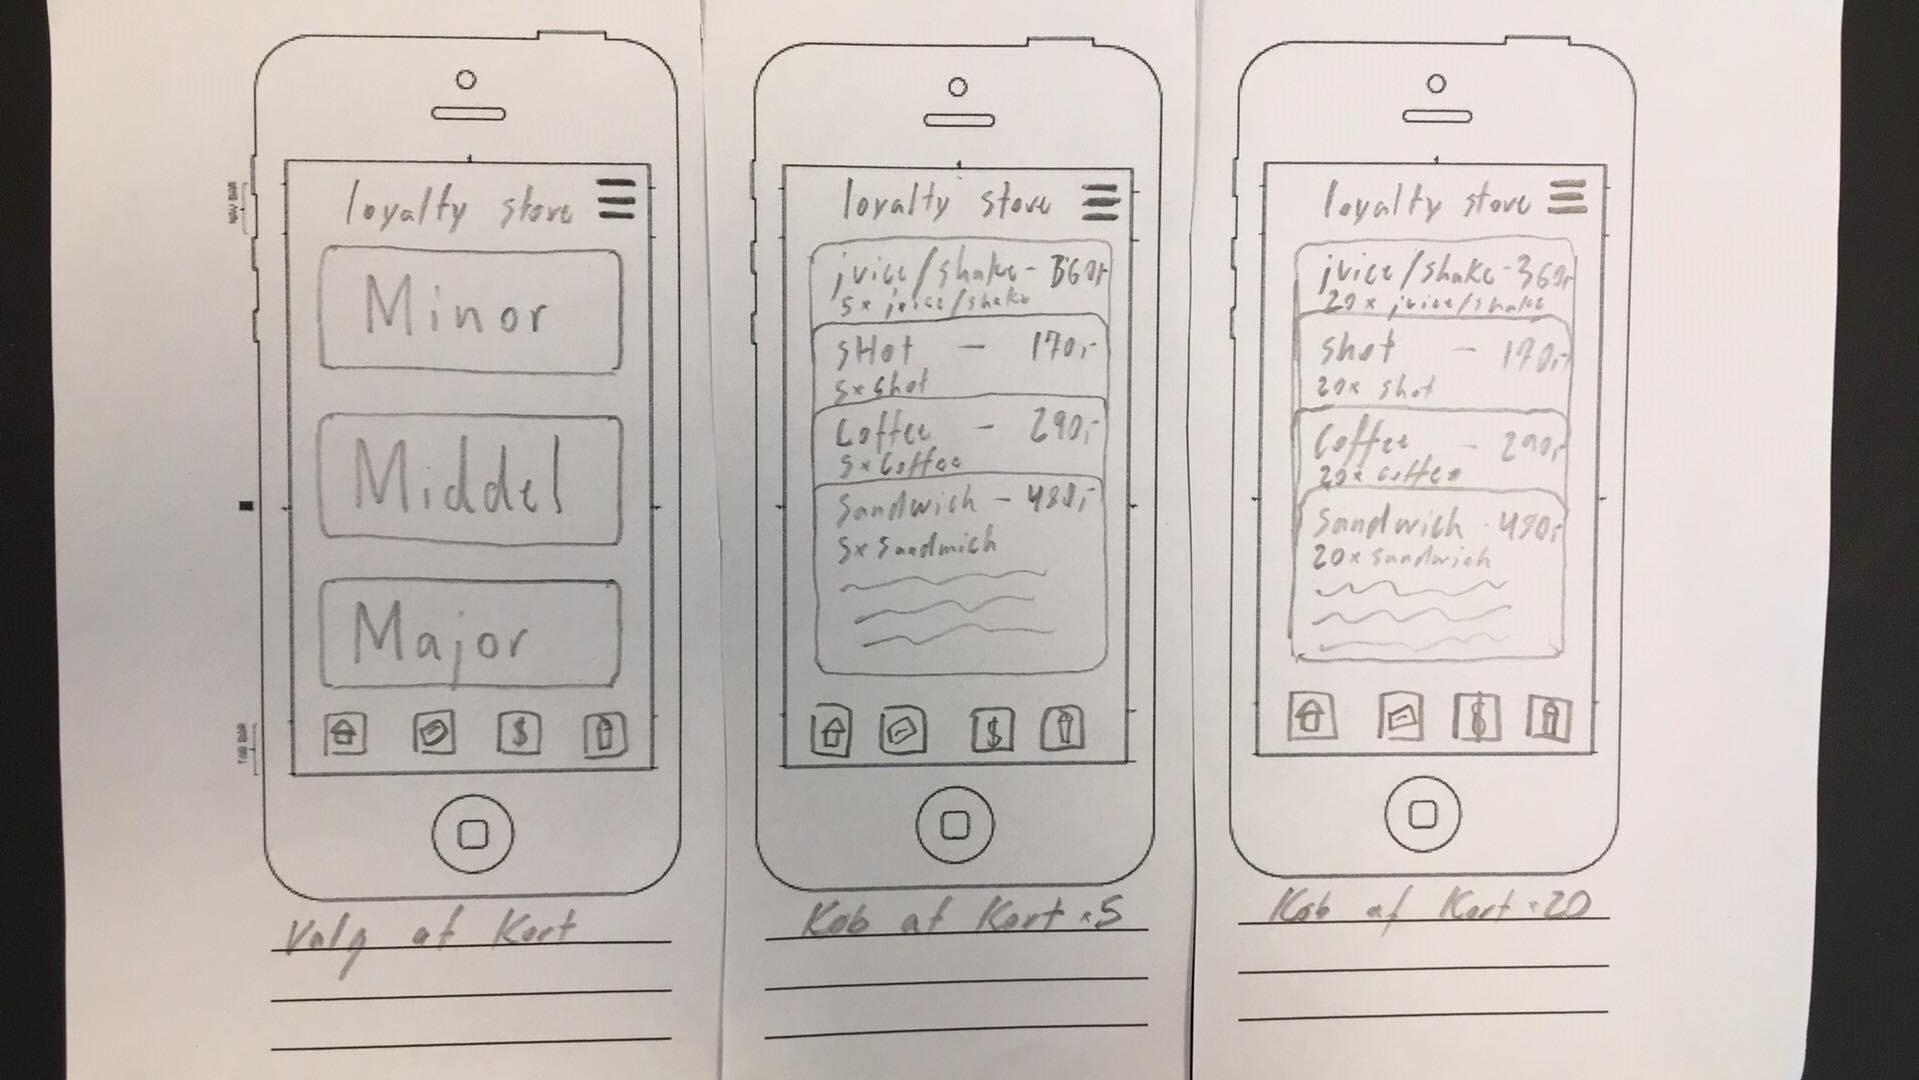 loyalty store
Minor
Middel
Major
$
Valg af Kort
loyalty store
juice/shake - 360,-
5x juice/shake
sHot - 170,-
5x shot
Coffee - 290,-
5x Coffee
Sandwich - 480,-
5x Sandwich
$
Køb af Kort x5
loyalty store
juice/shake - 360,-
20x juice/shake
shot - 170,-
20x shot
Coffee - 290,-
20x coffee
Sandwich - 480,-
20x sandwich
$
Køb af Kort x20
NAV BAR
TAB BAR